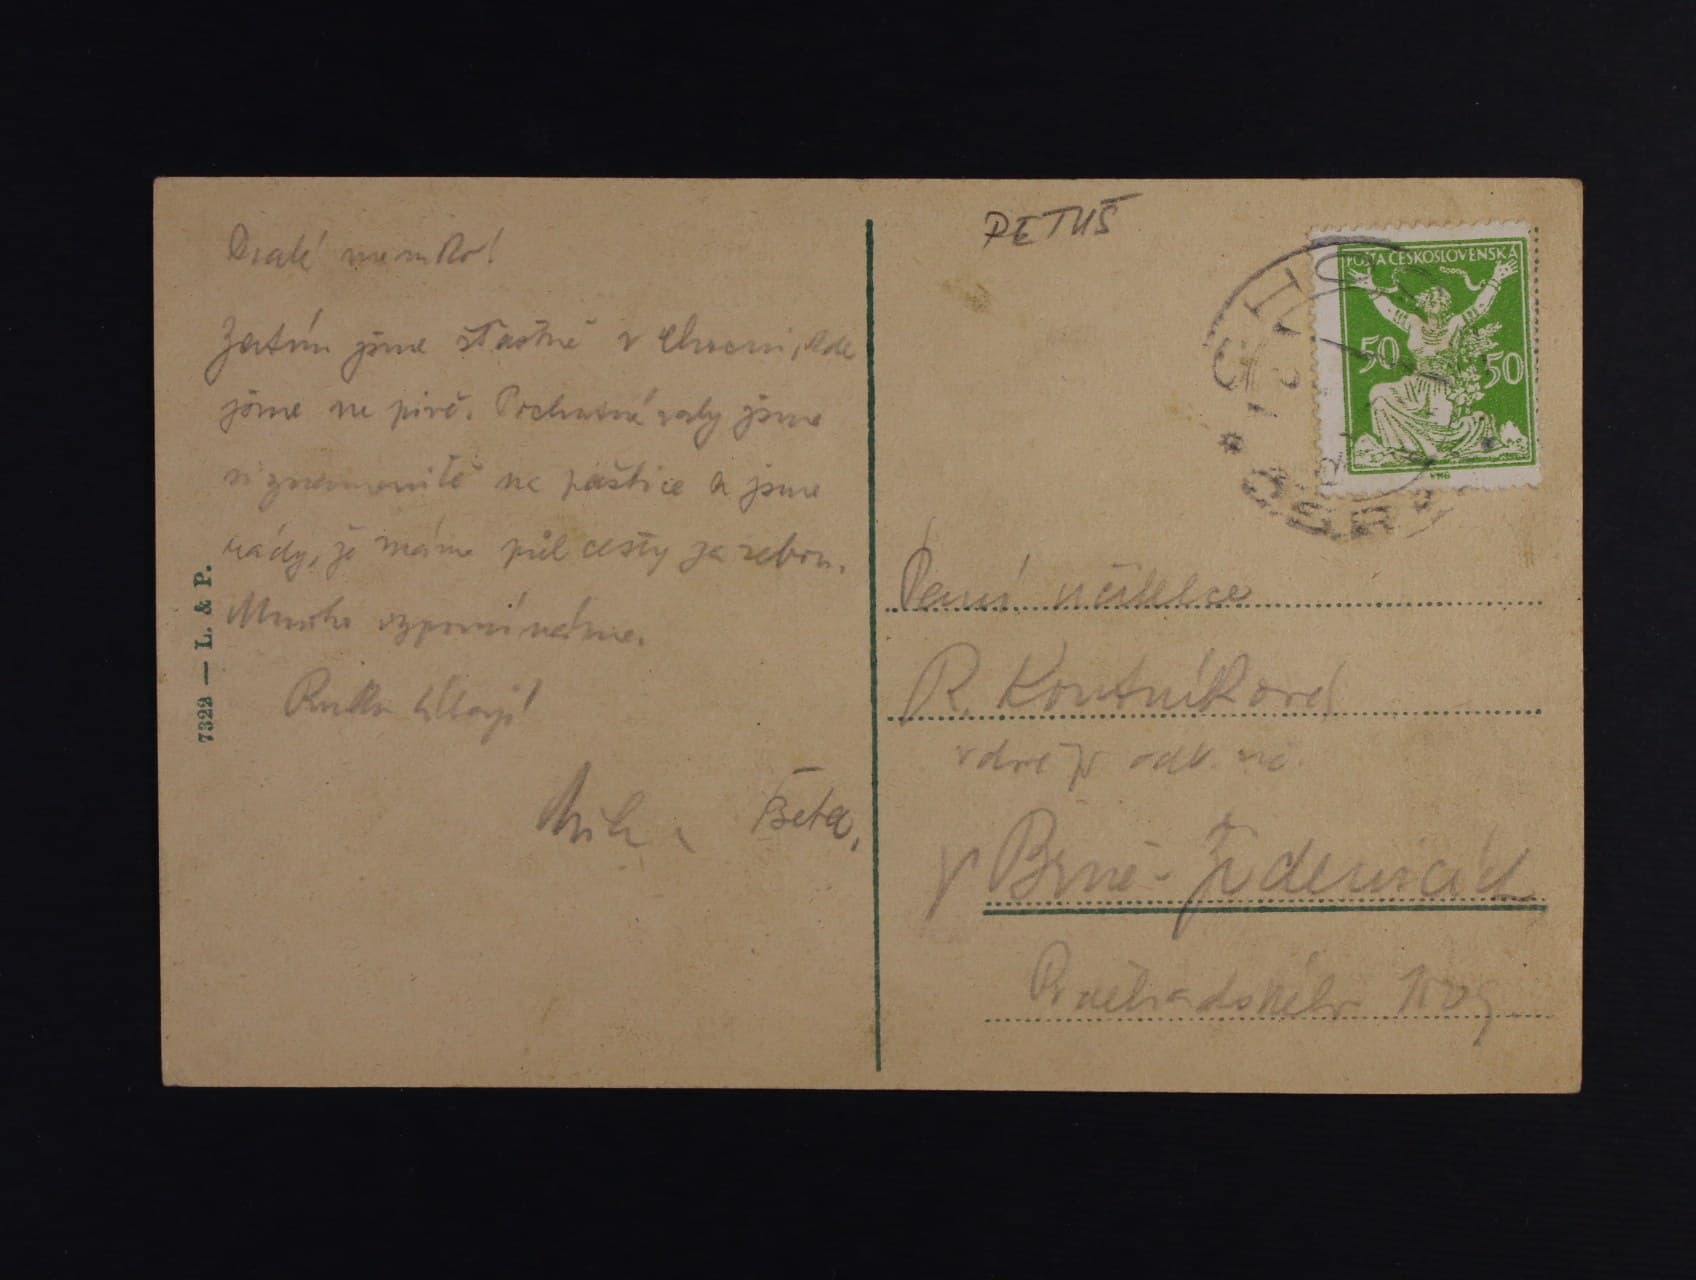 Drahá maminko!
Zatím jsme šťastně v Chocni, kde
jsme na pivě. Pochutnávaly jsme
si znamenitě na paštice a jsme
rády, že máme půl cesty za sebou.
Mnoho vzpomínáme.
Ruku líbají
Běta.
7322 — L. & P.
PETUŠ
POŠTA ČESKOSLOVENSKÁ
50 50
ČSR
Paní učitelce
R. Koutníková
vdově po odb. uč.
v Brně-Židenicích